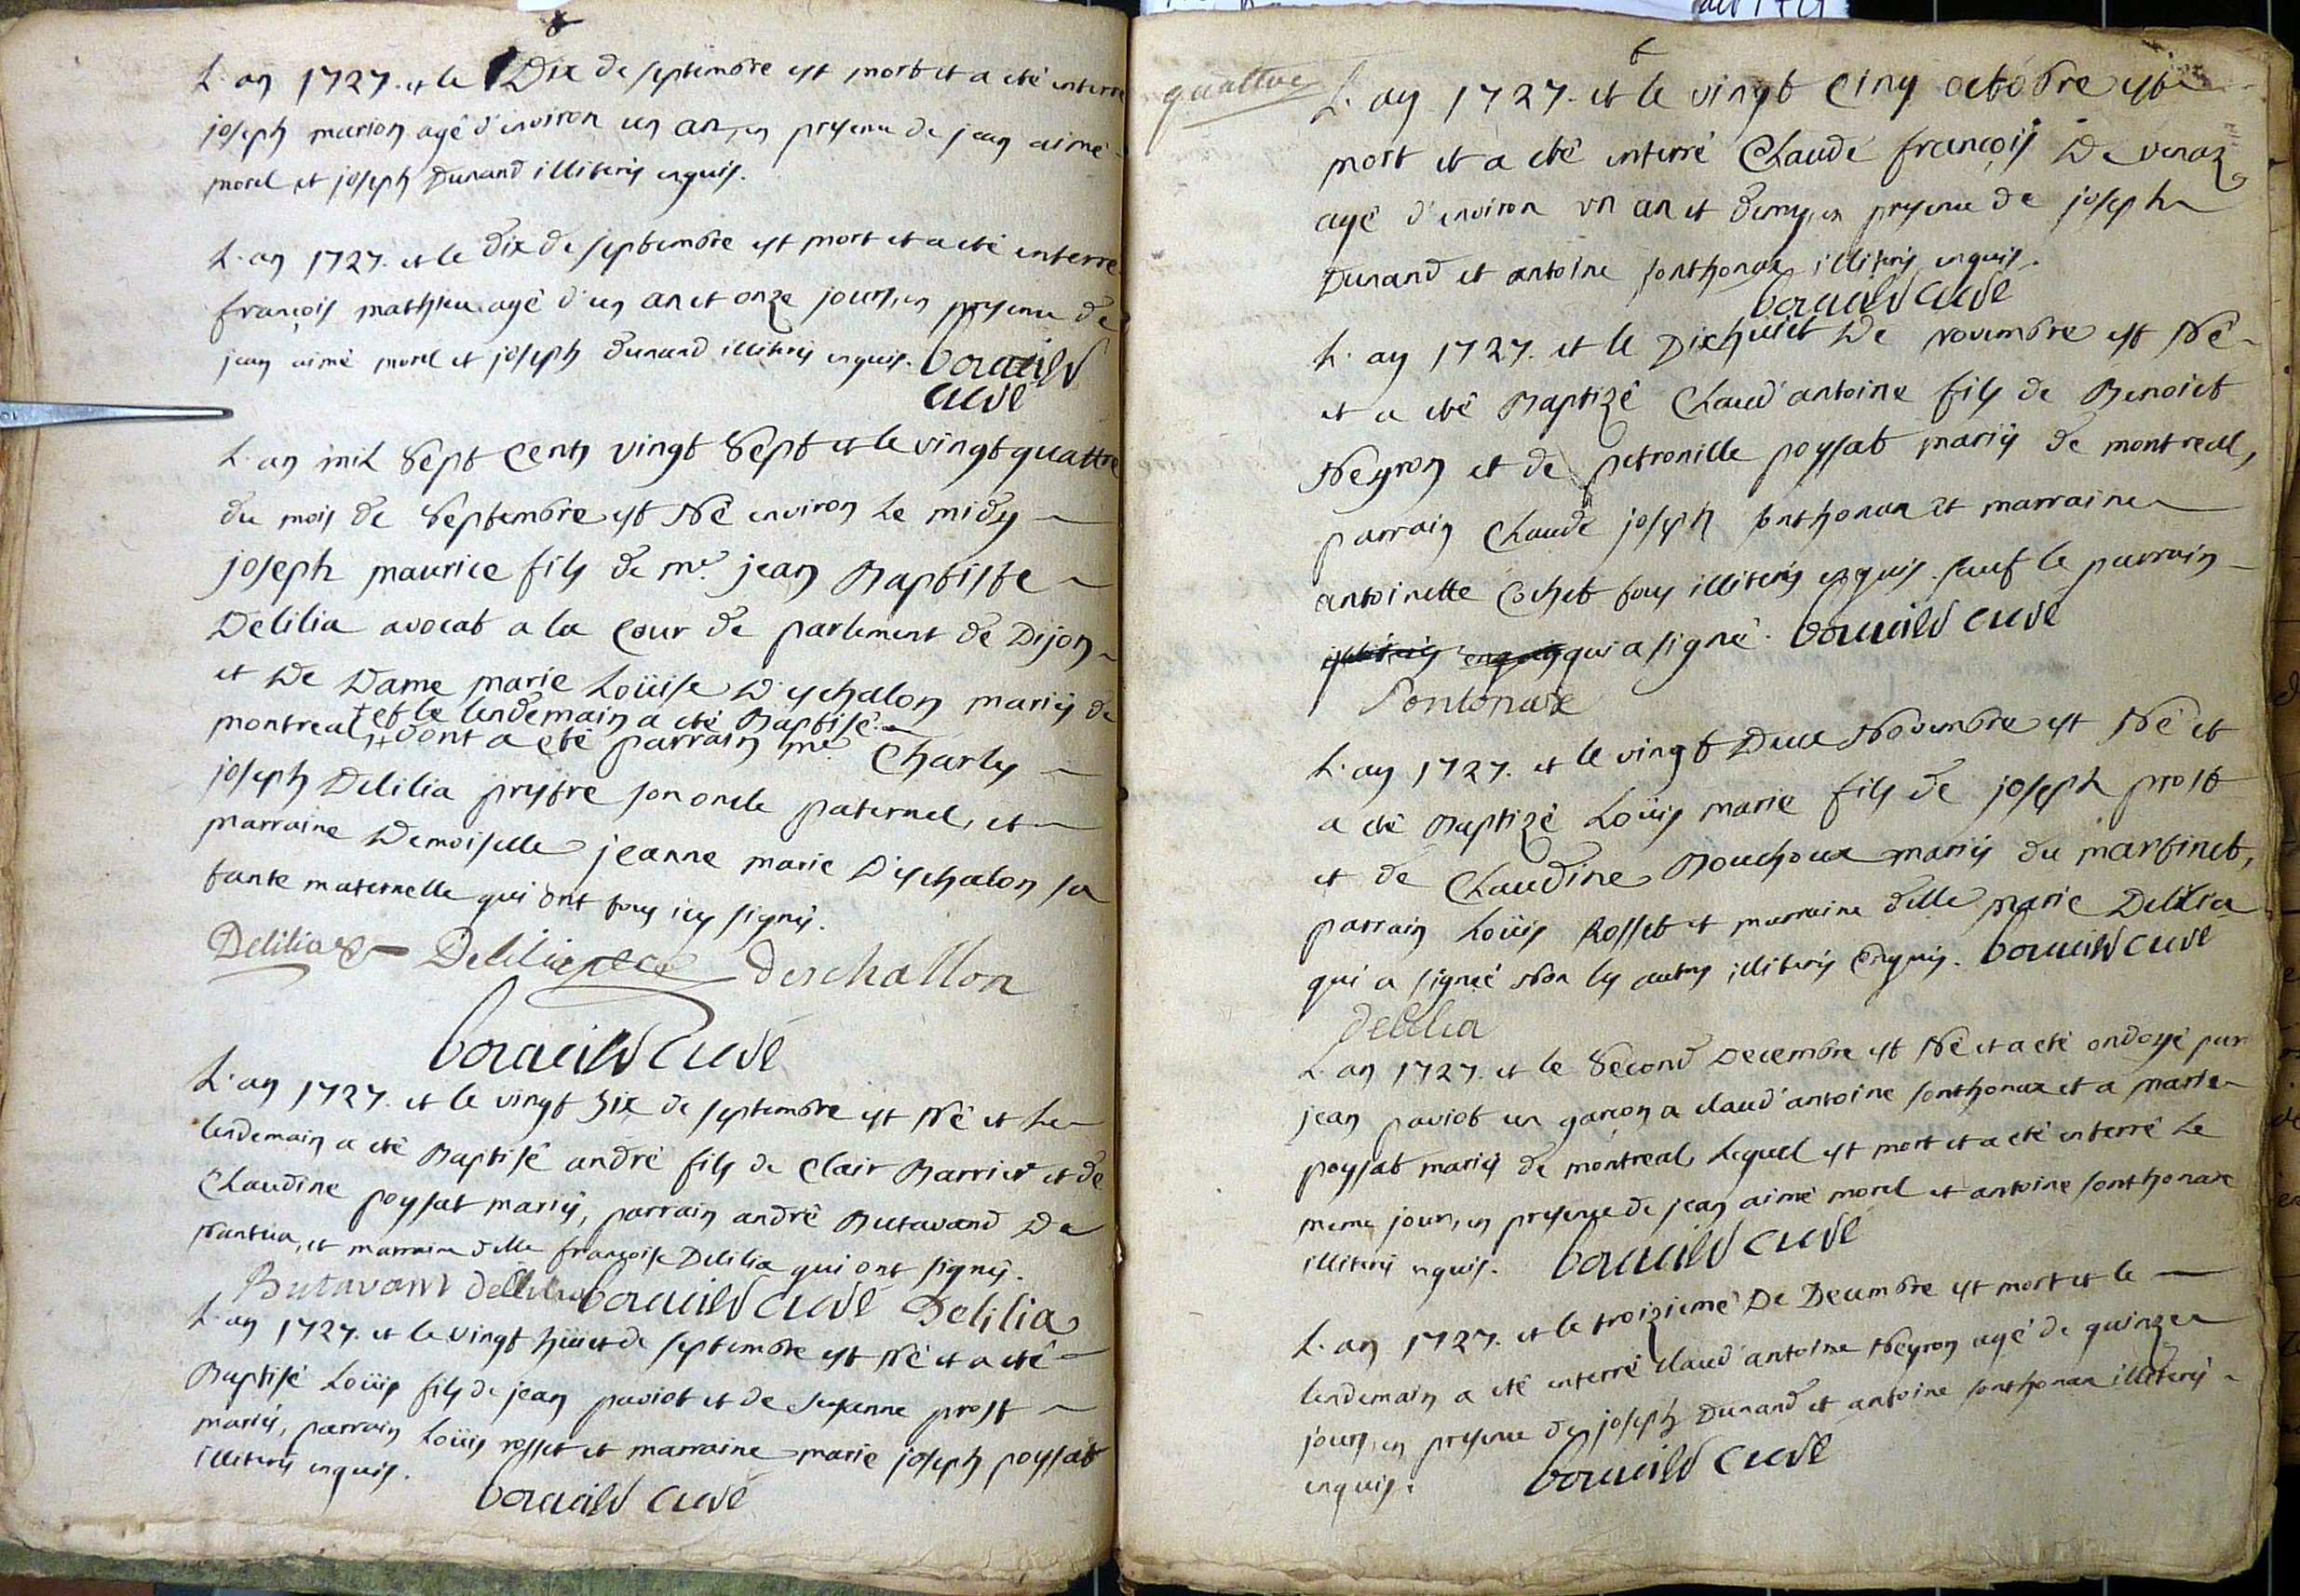 L'an 1727. et le Dix de septembre est mort et a eté interré
joseph marion agé d'environ un an, en presence de jean aimé
morel et joseph Dunand illiterés enquis.
L'an 1727. et le dix de septembre est mort et a eté enterré
françois matthieu agé d'un an et onze jours, en presence de
jean aimé morel et joseph Dunand illiterés enquis.
curé
L'an mil sept cents vingt sept et le vingt quattre
du mois de septembre est Né environ le midy
joseph maurice fils de me. jean Baptiste
Delilia avocat a la cour de parlement de Dijon
et De Dame marie Loüise D'eschalon mariés de
montreal, + et le lendemain a eté Baptisé.
+ dont a eté parrain me. Charles
joseph Delilia prestre son oncle paternel, et
marraine Demoiselle jeanne marie D'eschalon sa
tante maternelle qui ont tous icy signés.
Delilia Delilia deschallon
curé
L'an 1727. et le vingt six de septembre est Né et le
lendemain a eté Baptisé andré fils de Clair Barrier et de
Claudine poysat mariés, parrain andré Butavand De
Nantua, et marraine delle françoise Delilia qui ont signés.
Butavant curé Delilia
L'an 1727. et le vingt huict de septembre est Né et a eté
Baptisé Loüis fils de jean paviot et de Susanne prost
mariés, parrain Loüis rosset et marraine marie joseph poysat
illiterés enquis.
curé
quattre
L'an 1727. et le vingt cinq octobre est
mort et a eté interré Claude françois De venaz
agé d'environ un an et demy, en presence de joseph
Dunand et antoine sonthonax illiterés enquis.
curé
L'an 1727. et le Dixhuict De novembre est Né
et a eté Baptizé Claud'antoine fils de Benoict
Neyron et de petronille poysat mariés de montreal,
parrain Claude joseph sonthonax et marraine
antoinette Cochet tous illiterés enquis. sauf le parrain
qui a signé. curé
Sontonax
L'an 1727. et le vingt Deux Novembre est Né et
a eté Baptizé Loüis marie fils de joseph prost
et de Claudine Bouchoux mariés du martinet,
parrain Loüis Rosset et marraine delle marie Delilia
qui a signé non les autres illiterés Enquis. curé
delilia
L'an 1727. et le second Decembre est Né et a eté ondoyé par
jean paviot un garçon a claud'antoine sonthonax et a marie
poysat mariés de montreal, lequel est mort et a eté interré le
meme jour, en presence de jean aimé morel et antoine sonthonax
illiterés enquis. curé
L'an 1727. et le troizieme De Decembre est mort et le
lendemain a eté enterré claud'antoine Neyron agé de quinze
jours, en presence de joseph Dunand et antoine sonthonax illiterés
enquis. curé